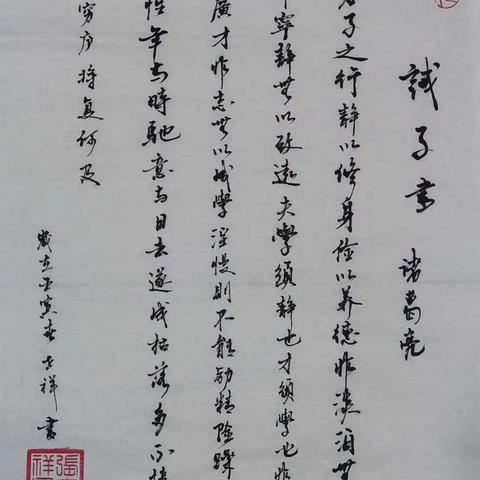 誡子書 諸葛亮
君子之行靜以修身儉以养德非澹泊無
寧靜無以致遠夫學須靜也才須學也非
廣才非志無以成學淫慢則不能勵精險躁
性年与時馳意与日去遂成枯落多不接
窮庐將复何及
歲在壬寅春 祥書
張 祥